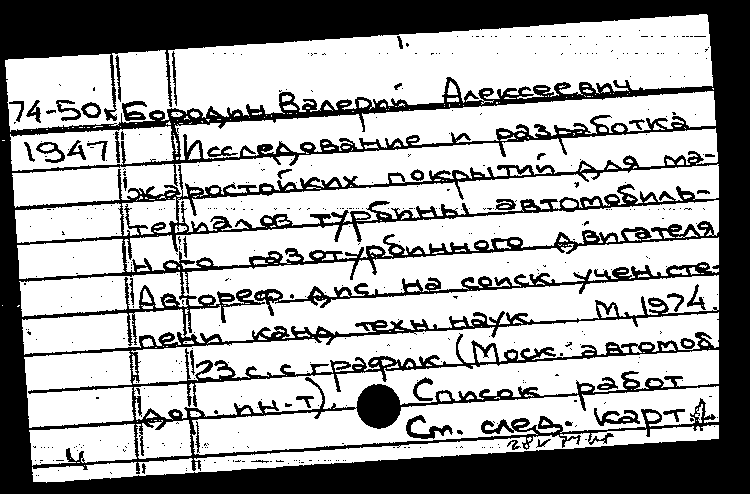 1.
74-50к Бородин, Валерий Алексеевич.
1947 Исследование и разработка
жаростойких покрытий для ма-
териалов турбины автомобиль-
ного газотурбинного двигателя
Автореф. дис. на соиск. учен. сте-
пени канд. техн. наук. М., 1974.
23 с. с график. (Моск. автомоб.
дор. ин-т). Список работ
См. след. карт.
ч